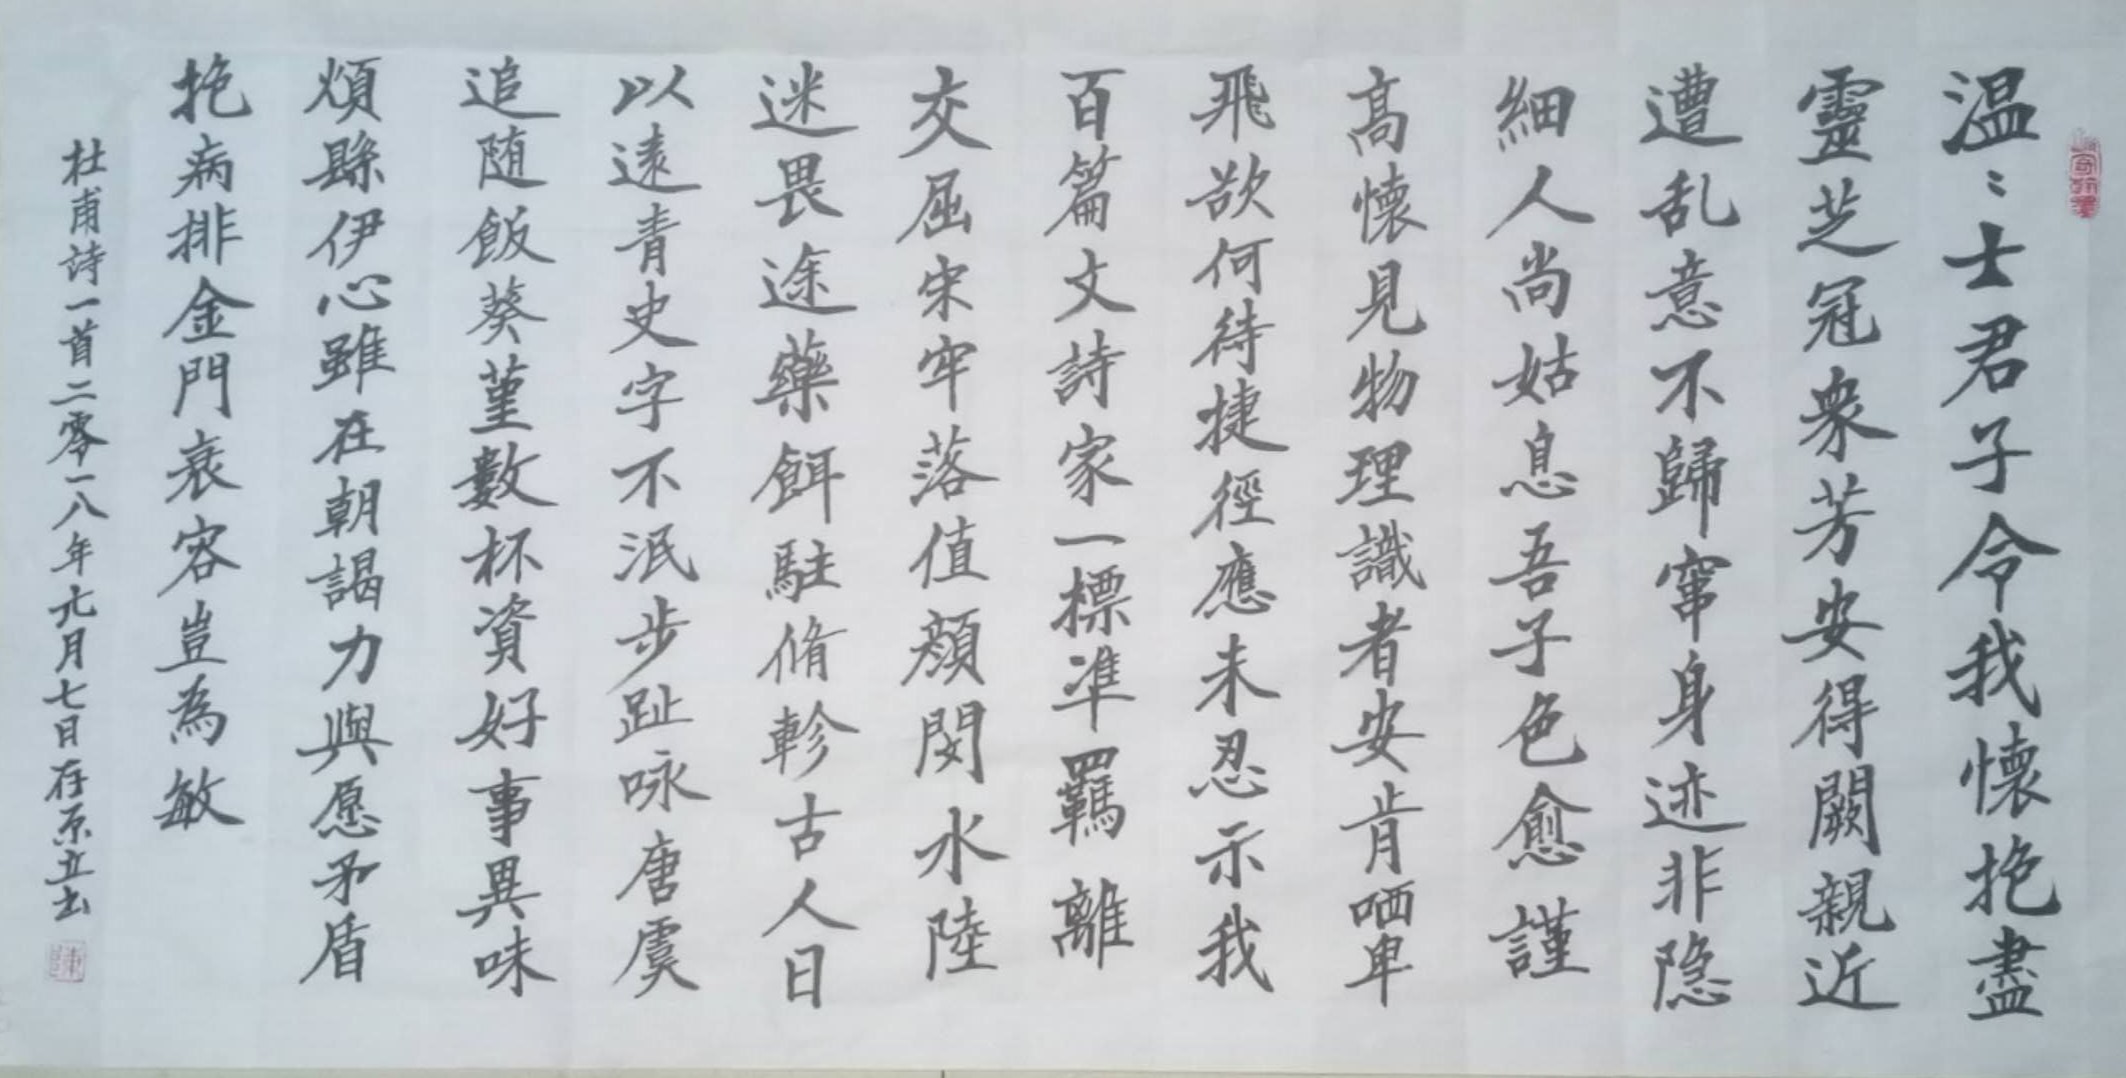 温〻士君子令我懷抱盡
靈芝冠衆芳安得闕親近
遭乱意不歸窜身迹非隐
細人尚姑息吾子色愈謹
高懷見物理識者安肯哂卑
飛欲何待捷徑應未忍示我
百篇文詩家一標準羈離
交屈宋牢落值顔閔水陸
迷畏途藥餌駐脩軫古人日
以遠青史字不泯步趾咏唐虞
追随飯葵堇數杯資好事異味
煩縣伊心雖在朝謁力與愿矛盾
抱病排金門衰容豈為敏
杜甫詩一首二零一八年九月七日存原立書